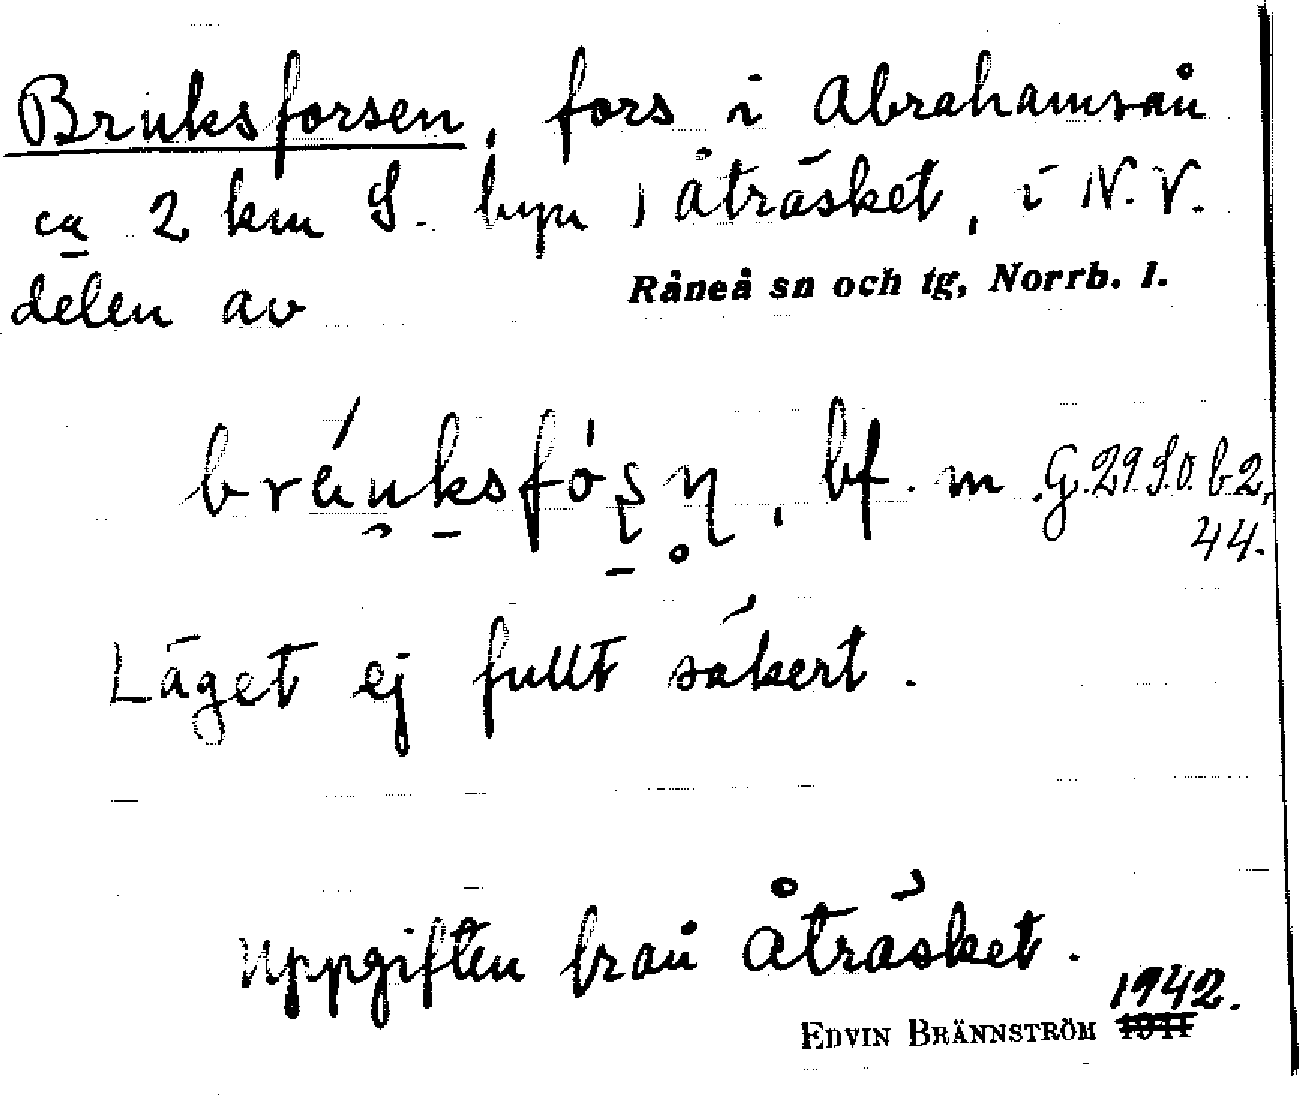 Bruksforsen, fors i Abrahamsån
ca 2 km S. byn i Åträsket, i N.V.
delen av Råneå sn och tg, Norrb. l.
bréuksfósn, bf. m G.29.S.O.b.2,
44.
Läget ej fullt säkert.
Uppgiften från Åträsket.
1942.
EDVIN BRÄNNSTRÖM 1941